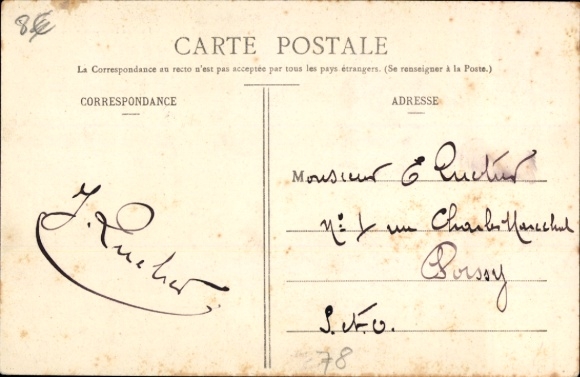 8
CARTE POSTALE
La Correspondance au recto n'est pas acceptée par tous les pays étrangers. (Se renseigner à la Poste.)
CORRESPONDANCE
ADRESSE
J.
Monsieur E
N°: 1 rue Charles Maréchal
Poissy
S. & O.
78